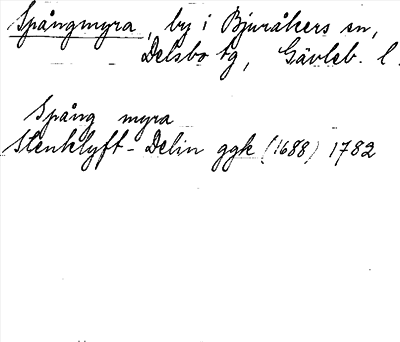 Spångmyra, by i Bjuråkers sn,
Delsbo tg, Gävleb. l.
Spång myra
Stenklyft-Delin ggk (1688) 1782